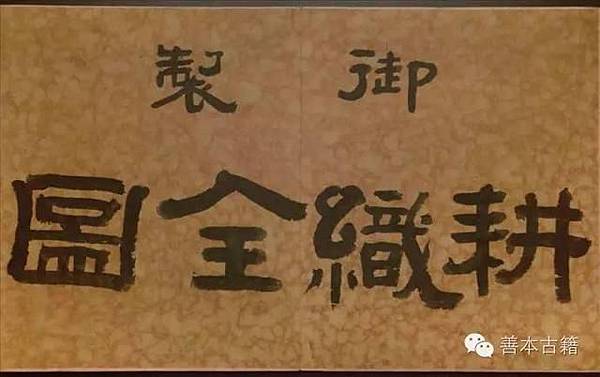 御製
耕織全圖
善本古籍